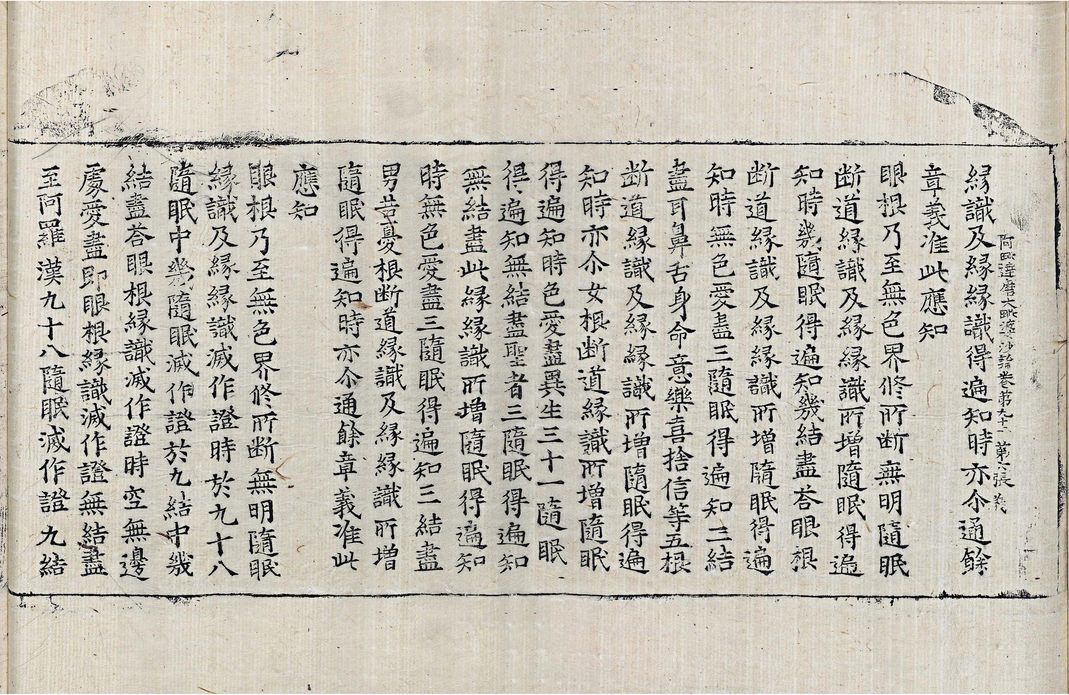 阿毗達磨大毗婆沙論卷第九十一 第六張 義
緣識及緣緣識得遍知時亦尒通餘
章義准此應知
眼根乃至無色界修所断無明隨眠
断道緣識及緣緣識所增隨眠得遍
知時幾隨眠得遍知幾結盡荅眼根
断道緣識及緣緣識所增隨眠得遍
知時無色愛盡三隨眠得遍知三結
盡耳鼻舌身命意樂喜捨信等五根
断道緣識及緣緣識所增隨眠得遍
知時亦尒女根断道緣識所增隨眠
得遍知時色愛盡異生三十一隨眠
得遍知無結盡聖者三隨眠得遍知
無結盡此緣緣識所增隨眠得遍知
時無色愛盡三隨眠得遍知三結盡
男苦憂根断道緣識及緣緣識所增
隨眠得遍知時亦尒通餘章義准此
應知
眼根乃至無色界修所断無明隨眠
緣識及緣緣識滅作證時於九十八
隨眠中幾隨眠滅作證於九結中幾
結盡荅眼根緣識滅作證時空無邊
處愛盡即眼根緣識滅作證無結盡
至阿羅漢九十八隨眠滅作證九結